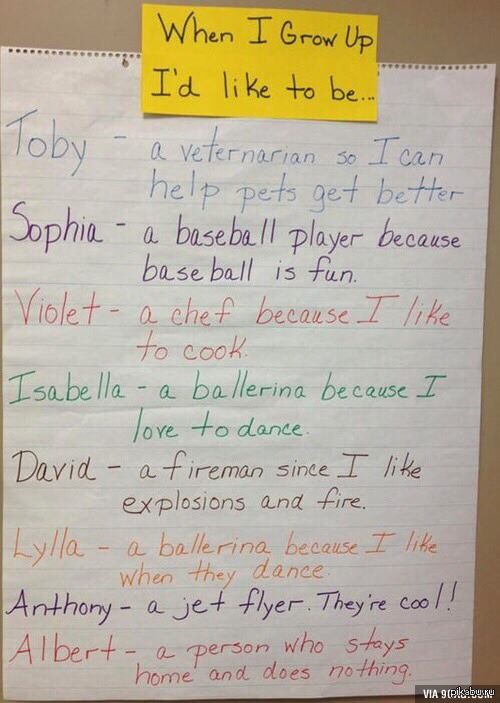 When I Grow Up
I'd like to be...
Toby - a veternarian so I can
help pets get better
Sophia - a baseball player because
baseball is fun.
Violet - a chef because I like
to cook.
Isabella - a ballerina because I
love to dance.
David - a fireman since I like
explosions and fire.
Lylla - a ballerina because I like
when they dance.
Anthony - a jet flyer. They're cool!
Albert - a person who stays
home and does nothing.
VIA